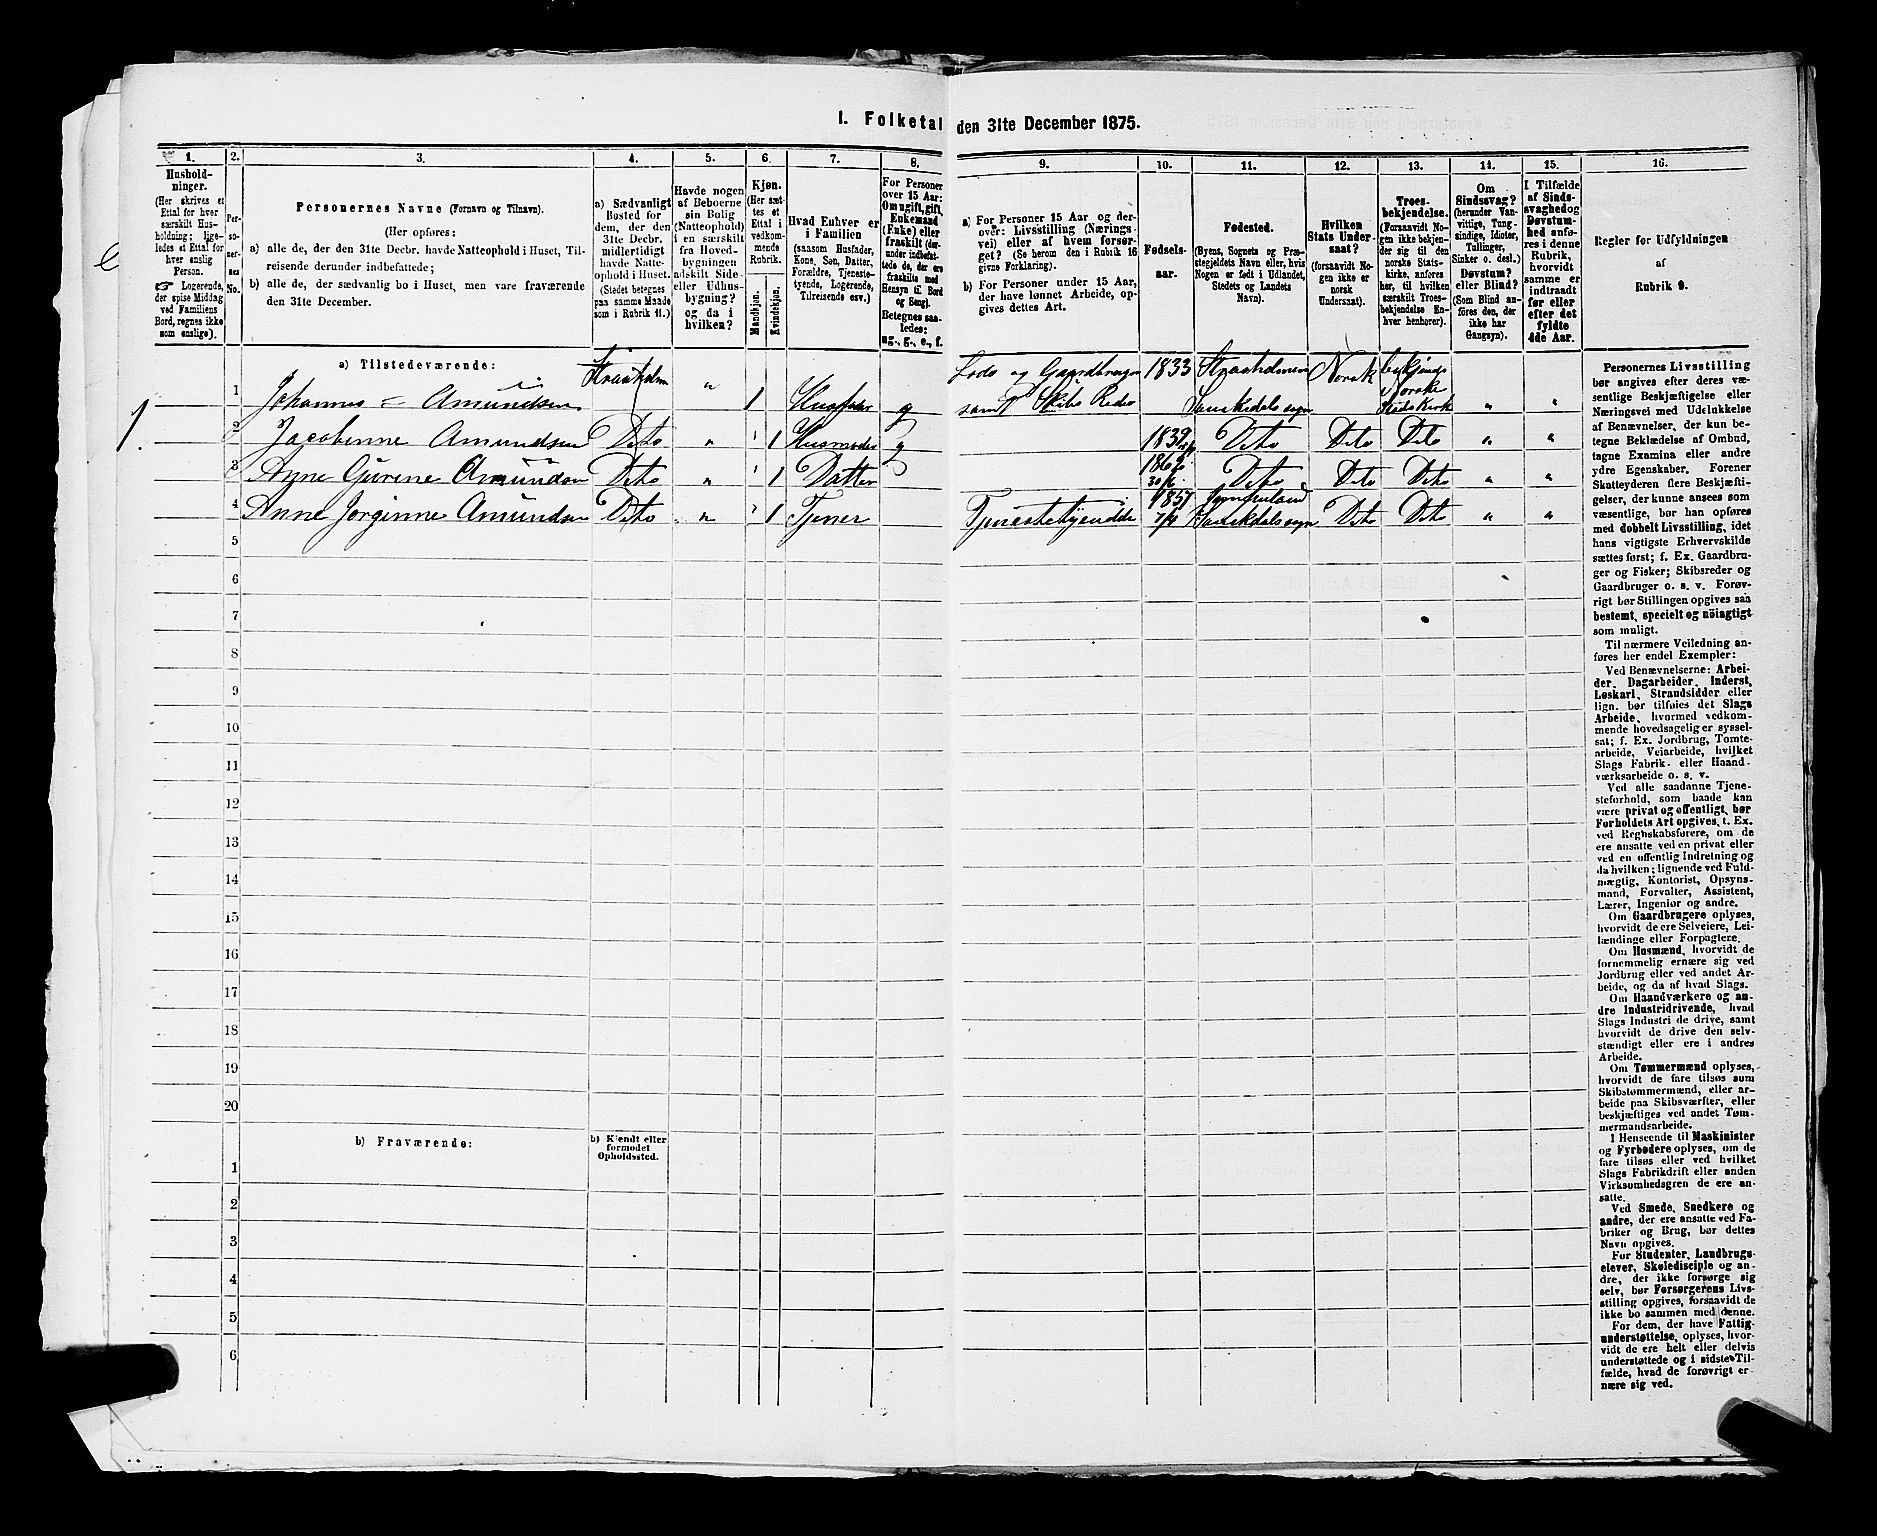 1. Folketal den 31te December 1875.
1.
2.
3.
4.
5.
6.
7.
8.
9.
10.
11.
12.
13.
14.
15.
16.
Hushold-
ninger.
(Her skrives et
Ettal for hver
særskilt Hus-
holdning; lige-
ledes et Ettal for
hver enslig
Person.
☞ Logerende,
der spise Middag
ved Familiens
Bord, regnes ikke
som enslige).
Per-
so-
ner-
nes
No.
Personernes Navne (Fornavn og Tilnavn).
(Her opføres:
a) alle de, der den 31te Decbr. havde Natteophold i Huset, Til-
reisende derunder indbefattede;
b) alle de, der sædvanlig bo i Huset, men vare fraværende
den 31te December.
a) Sædvanligt
Bosted for
dem, der den
31te Decbr.
midlertidigt
havde Natte-
ophold i Huset.
(Stedet betegnes
paa samme Maade
som i Rubrik 11.)
Havde nogen
af Beboerne
sin Bolig
(Natteophold)
i en særskilt
fra Hoved-
bygningen
adskilt Side-
eller Udhus-
bygning?
og da i
hvilken?
Kjøn.
(Her sæt-
tes et
Ettal i
vedkom-
mende
Rubrik.
Mandkjøn.
Kvindekjøn.
Hvad Enhver er
i Familien
(saasom Husfader,
Kone, Søn, Datter,
Forældre, Tjeneste-
tyende, Logerende,
Tilreisende osv.)
For Personer
over 15 Aar:
Om ugift, gift,
Enkemand
(Enke) eller
fraskilt (der-
under indbefat-
tede de, der ere
fraskilte med
Hensyn til Bord
og Seng).
Betegnes saa-
ledes:
ug., g., e., f.
a) For Personer 15 Aar og der-
over: Livsstilling (Nærings-
vei) eller af hvem forsør-
get? (Se herom den i Rubrik 16
givne Forklaring).
b) For Personer under 15 Aar,
der have lønnet Arbeide, op-
gives dettes Art.
Fødsels-
aar.
Fødested.
(Byens, Sognets og Præ-
stegjeldets Navn eller, hvis
Nogen er født i Udlandet,
Stedets og Landets
Navn).
Hvilken
Stats Under-
saat?
(forsaavidt No-
gen ikke er
norsk
Undersaat).
Troes-
bekjendelse.
(Forsaavidt No-
gen ikke bekjen-
der sig til den
norske Stats-
kirke, anføres
her, til hvilken
særskilt Troes-
bekjendelse En-
hver henhører).
Om
Sindssvag?
(herunder Van-
vittige, Tung-
sindige, Idioter,
Tullinger,
Sinker o. desl.)
Døvstum?
eller Blind?
(Som Blind an-
føres den, der
ikke har
Gangsyn).
I Tilfælde
af Sinds-
svaghed og
Døvstum-
hed anfø-
res i denne
Rubrik,
hvorvidt
samme er
indtraadt
før eller
efter det
fyldte
4de Aar.
Regler for Udfyldningen
af
Rubrik 9.
a) Tilstedeværende:
1 Johannes Amundsen Straaholm " 1 Husfader g Lods og Gaardbruger samt Skibs Reder 1833 Straaholmen Sannikedal sogn Norsk bekjende Norske Stads Kirk " "
2 Jacobenne Amundsen Dito " 1 Husmoder g 1839 Dito Dito Dito " "
3 Anne Gurene Amundsen Dito " 1 Datter 1862 30/6 Dito Dito Dito " "
4 Anne Jorginne Amundsen Dito " 1 Tjener Tjenestetyende 1857 7/4 Jomfruland Sannikdal sogn Dito Dito " "
5
6
7
8
9
10
11
12
13
14
15
16
17
18
19
20
b) Fraværende:
b) Kjendt eller
formodet
Opholdssted.
1
2
3
4
5
6
Personernes Livsstilling
bør angives efter deres væ-
sentlige Beskjæftigelse eller
Næringsvei med Udelukkelse
af Benævnelser, der kun be-
tegne Beklædelse af Ombud,
tagne Examina eller andre
ydre Egenskaber. Forener
Skatteyderen flere Beskjæfti-
gelser, der kunne ansees som
væsentlige, bør han opføres
med dobbelt Livsstilling, idet
hans vigtigste Erhvervskilde
sættes først; f. Ex. Gaardbru-
ger og Fisker; Skibsreder og
Gaardbruger o. s. v. Forøv-
rigt bør Stillingen opgives saa
bestemt, specielt og nöiagtigt
som muligt.
Til nærmere Veiledning an-
føres her endel Exempler:
Ved Benævnelserne: Arbei-
der, Dagarbeider, Inderst,
Løskarl, Strandsidder eller
lign. bør tilføies det Slags
Arbeide, hvormed vedkom-
mende hovedsagelig er syssel-
sat; f. Ex. Jordbrug, Tomte-
arbeide, Veiarbeide, hvilket
Slags Fabrik- eller Haand-
værksarbeide o. s. v.
Ved alle saadanne Tjene-
steforhold, som baade kan
være privat og offentligt, bør
Forholdets Art opgives, t. Ex.
ved Regnskabsførere, om de
ere ansatte ved en privat eller
ved en offentlig Indretning og
da hvilken; lignende ved Fuld-
mægtig, Kontorist, Opsyns-
mand, Forvalter, Assistent,
Lærer, Ingeniør og andre.
Om Gaardbrugere oplyses,
hvorvidt de ere Selveiere, Lei-
lændinge eller Forpagtere.
Om Husmænd, hvorvidt de
fornemmelig ernære sig ved
Jordbrug eller ved andet Ar-
beide, og da af hvad Slags.
Om Haandværkere og an-
dre Industridrivende, hvad
Slags Industri de drive, samt
hvorvidt de drive den selv-
stændigt eller ere i andres
Arbeide.
Om Tømmermænd oplyses,
hvorvidt de fare tilsøs som
Skibstømmermænd, eller ar-
beide paa Skibsværfter, eller
beskjæftiges ved andet Tøm-
mermandsarbeide.
I Henseende til Maskinister
og Fyrbødere oplyses, om de
fare tilsøs eller ved hvilket
Slags Fabrikdrift eller anden
Virksomhedsgren de ere an-
satte.
Ved Smede, Snedkere og
andre, der ere ansatte ved Fa-
briker og Brug, bør dettes
Navn opgives.
For Studenter, Landbrugs-
elever, Skoledisciple og an-
dre, der ikke forsørge sig
selv, bør Forsørgerens Livs-
stilling opgives, forsaavidt de
ikke bo sammen med denne.
For dem, der have Fattig-
understøttelse, oplyses, hvor-
vidt de ere helt eller delvis
understøttede og i sidste Til-
fælde, hvad de forøvrigt er-
nære sig ved.